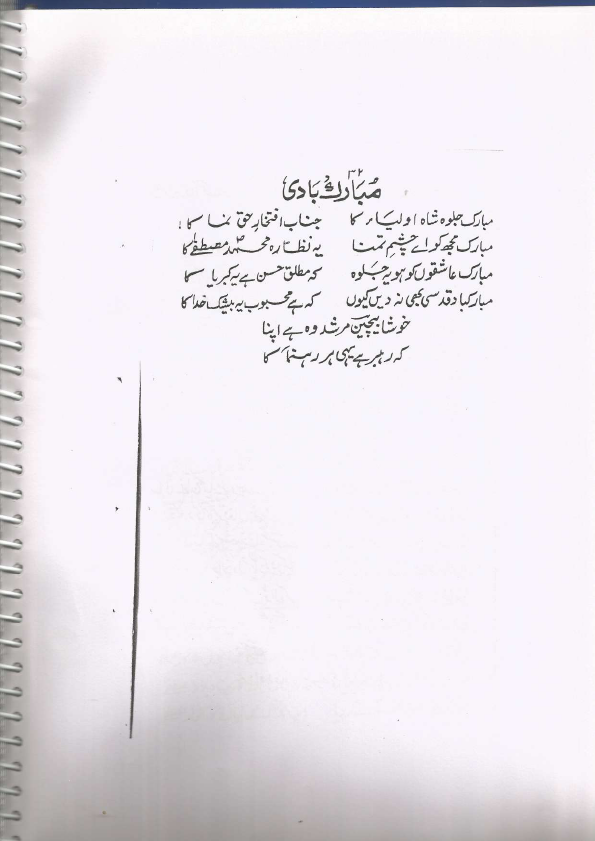 ۳۲
مبارک بادی
مبارک جلوہ شاہ اولیاء کا جناب افتخارِ حق نما کا
مبارک مجھ کو اے چشمِ تمنا یہ نظارہ محمد مصطفےٰ کا
مبارک عاشقوں کو ہو یہ جلوہ کہ مطلق حسن ہے یہ کبریا کا
مبارکباد قدسی بھی نہ دیں کیوں کہ ہے محبوب یہ بیشک خدا کا
خوشا بیچین مرشد وہ ہے اپنا
کہ رہبر ہے یہی ہر رہنما کا